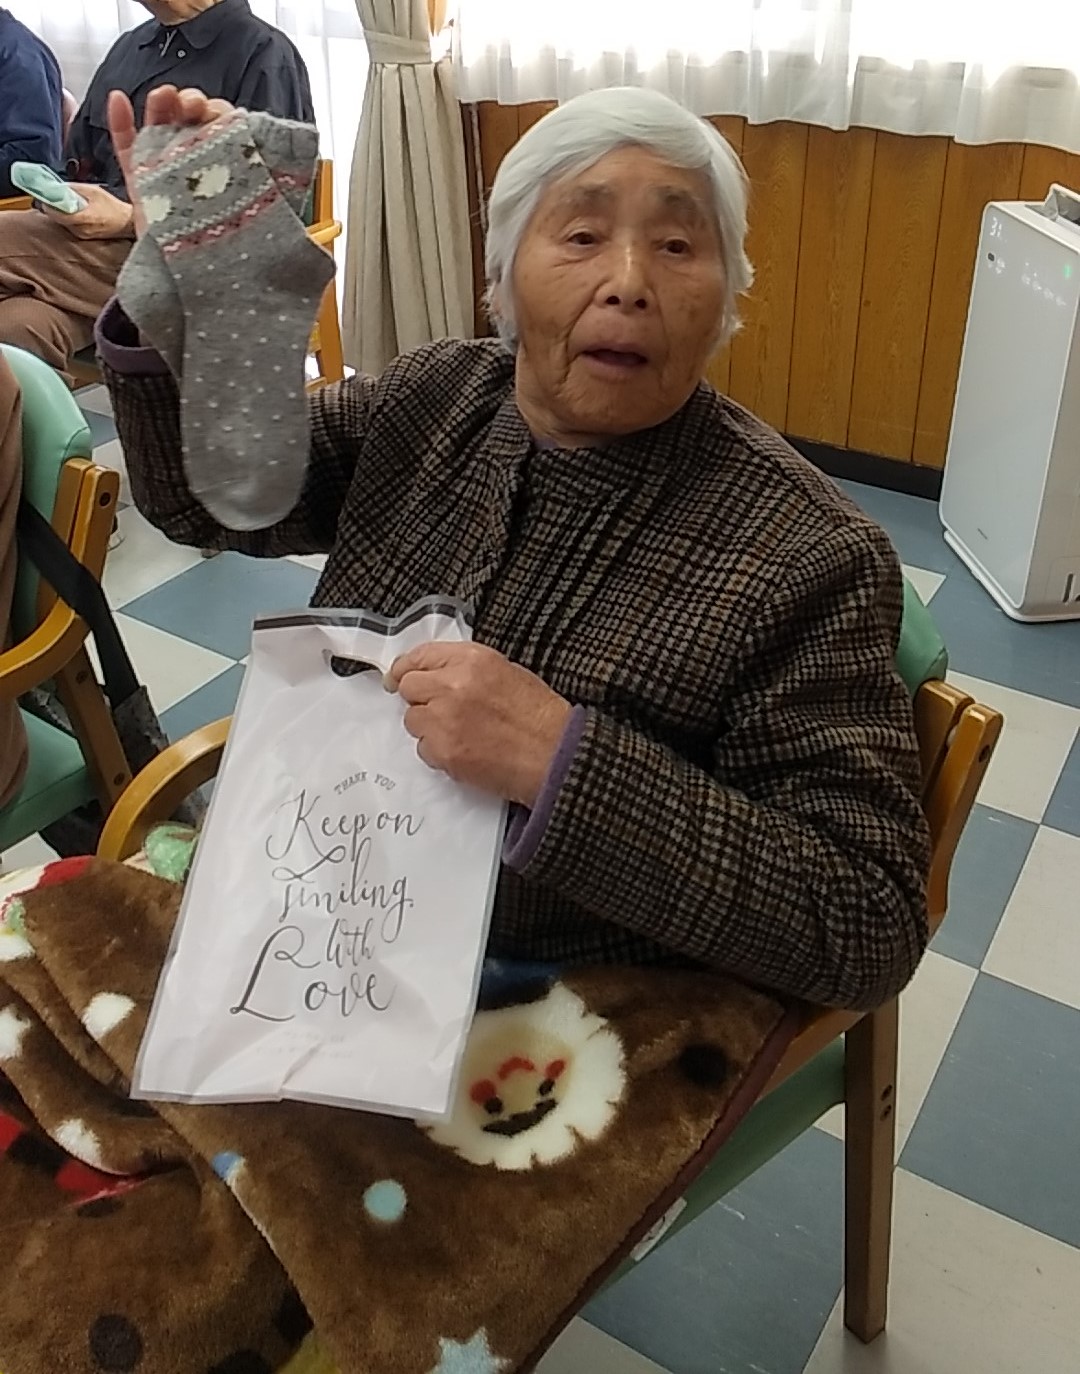 THANK YOU
Keep on
Smiling
With
Love
31